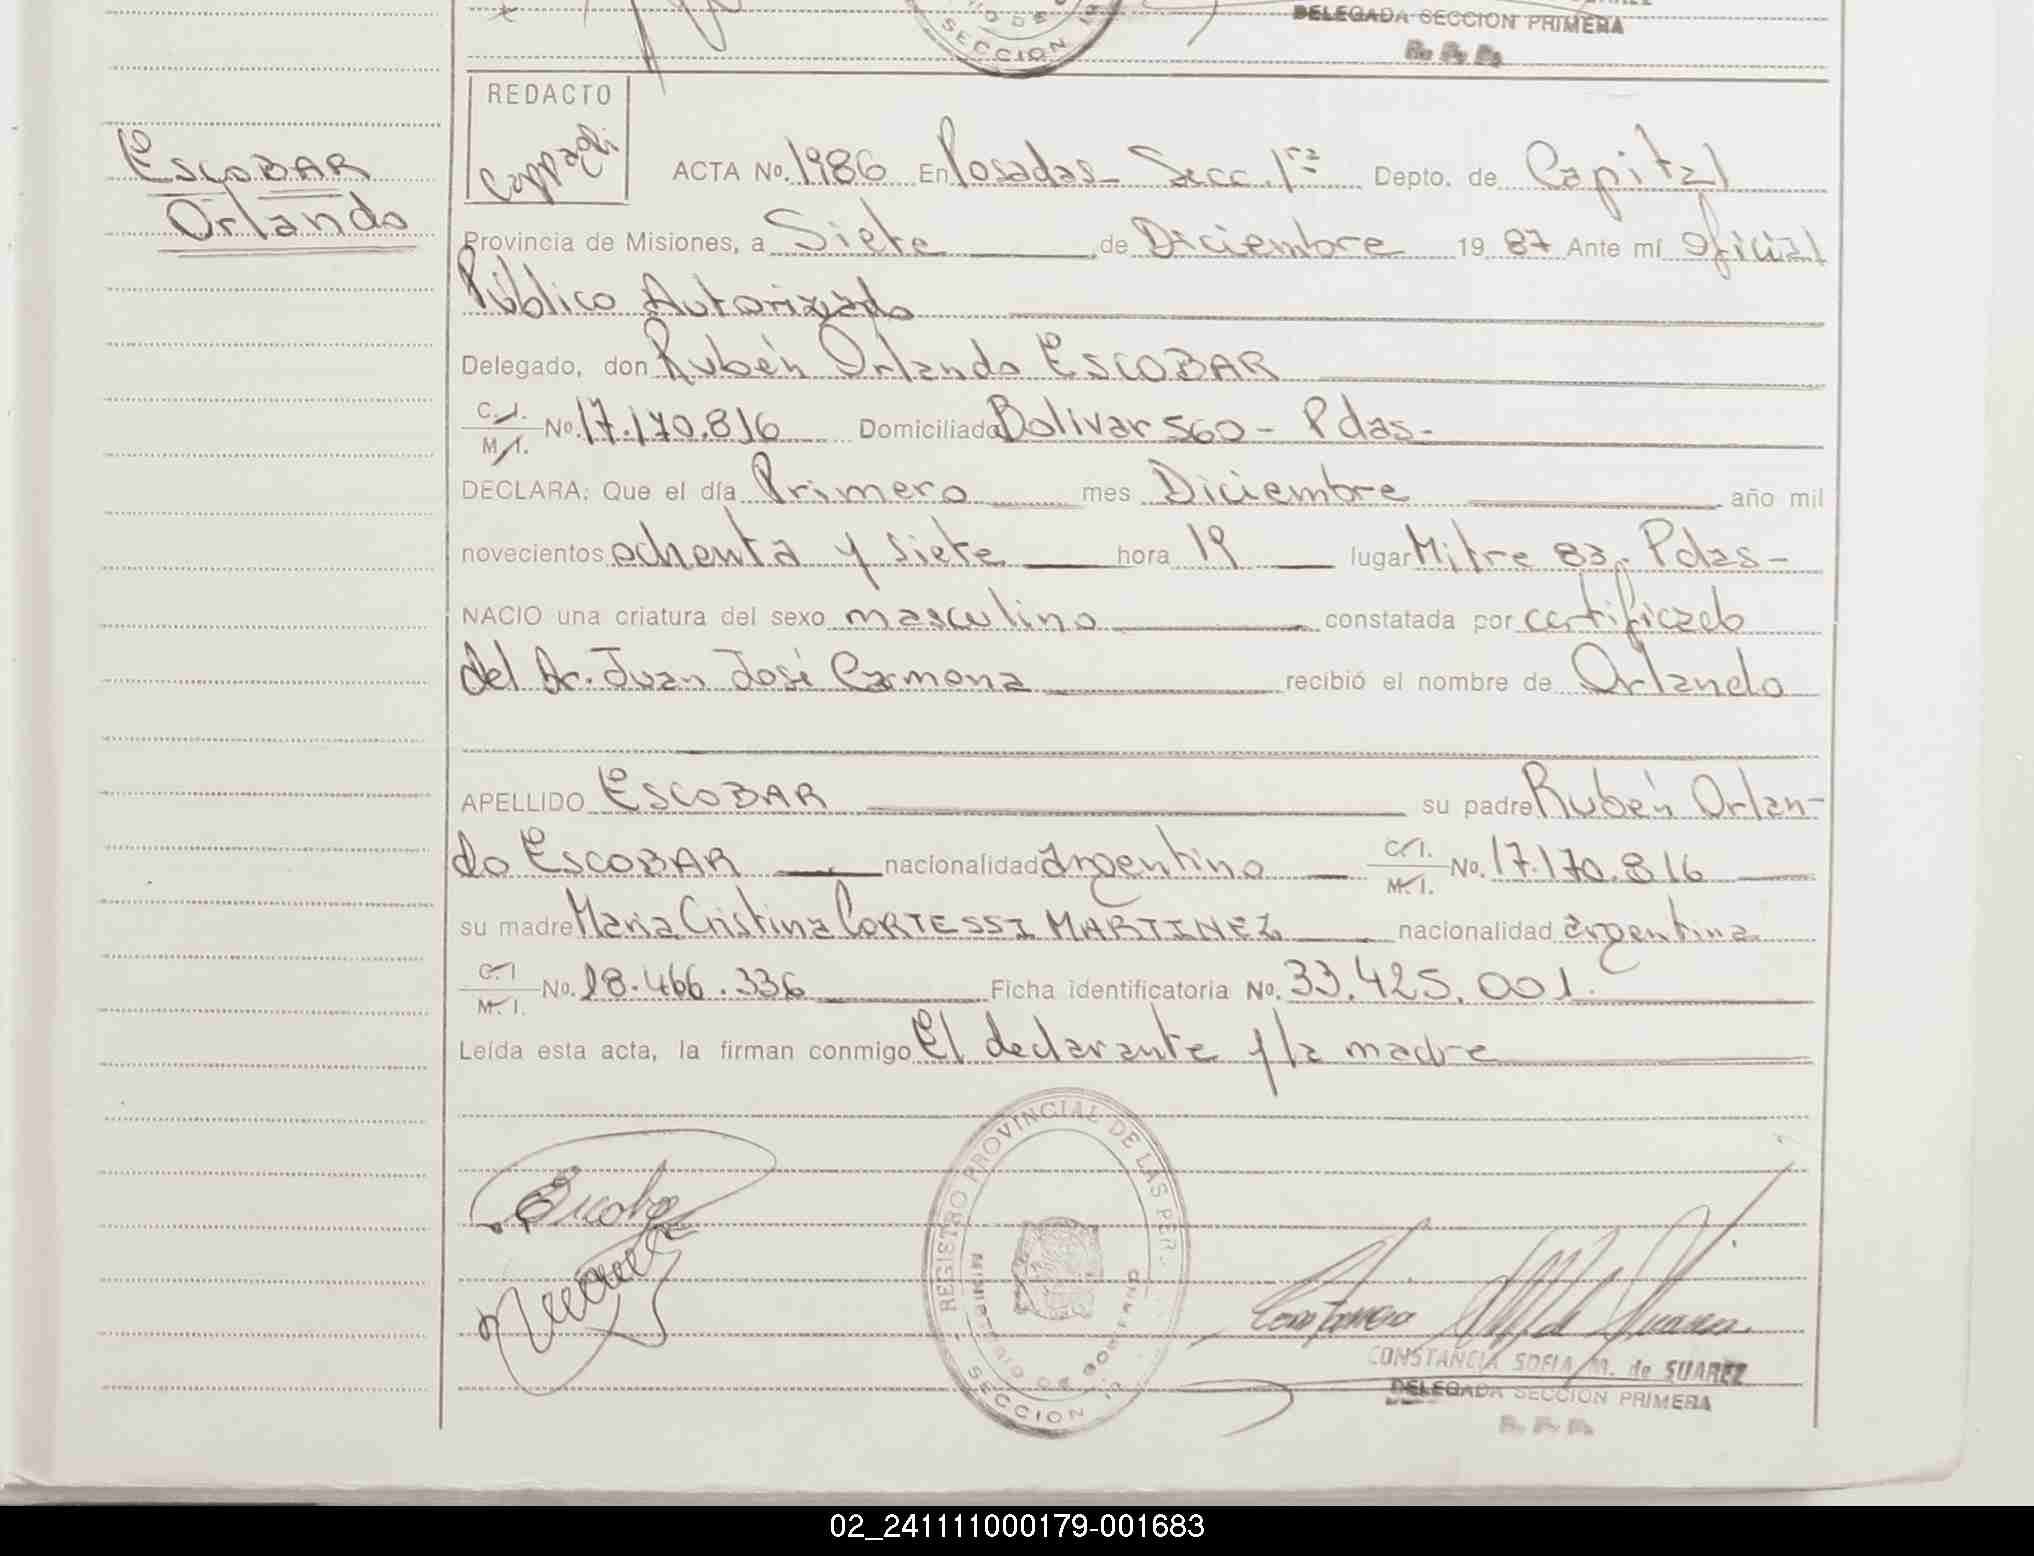 DELEGADA SECCION PRIMERA
R. P. P.
SECCION 1
REDACTO
ESCOBAR
Orlando
ACTA No. 1986 En Posadas - Secc. 1ra Depto. de Capital
Provincia de Misiones, a Siete de Diciembre 19 87 Ante mí Oficial
Público Autorizado
Delegado, don Rubén Orlando ESCOBAR
C. I.
M. I. No. 17.170.816 Domiciliado Bolivar 560 - Pdas -
DECLARA: Que el día Primero mes Diciembre año mil
novecientos ochenta y siete hora 19 lugar Mitre 83 - Pdas -
NACIO una criatura del sexo masculino constatada por certificado
del Dr. Juan José Carmona recibió el nombre de Orlando
APELLIDO ESCOBAR su padre Rubén Orlan-
do ESCOBAR nacionalidad argentino C. I. M. I. No. 17.170.816
su madre Maria Cristina CORTESSI MARTINEZ nacionalidad argentina
C. I. M. I. No. 18.466.336 Ficha identificatoria No. 33.425.001.
Leída esta acta, la firman conmigo El declarante y la madre
REGISTRO PROVINCIAL DE LAS PER.
MINISTERIO DE GOBIERNO
SECCION 1
CONSTANCIA SOFIA M. de SUAREZ
DELEGADA SECCION PRIMERA
R. P. P.
02_241111000179-001683